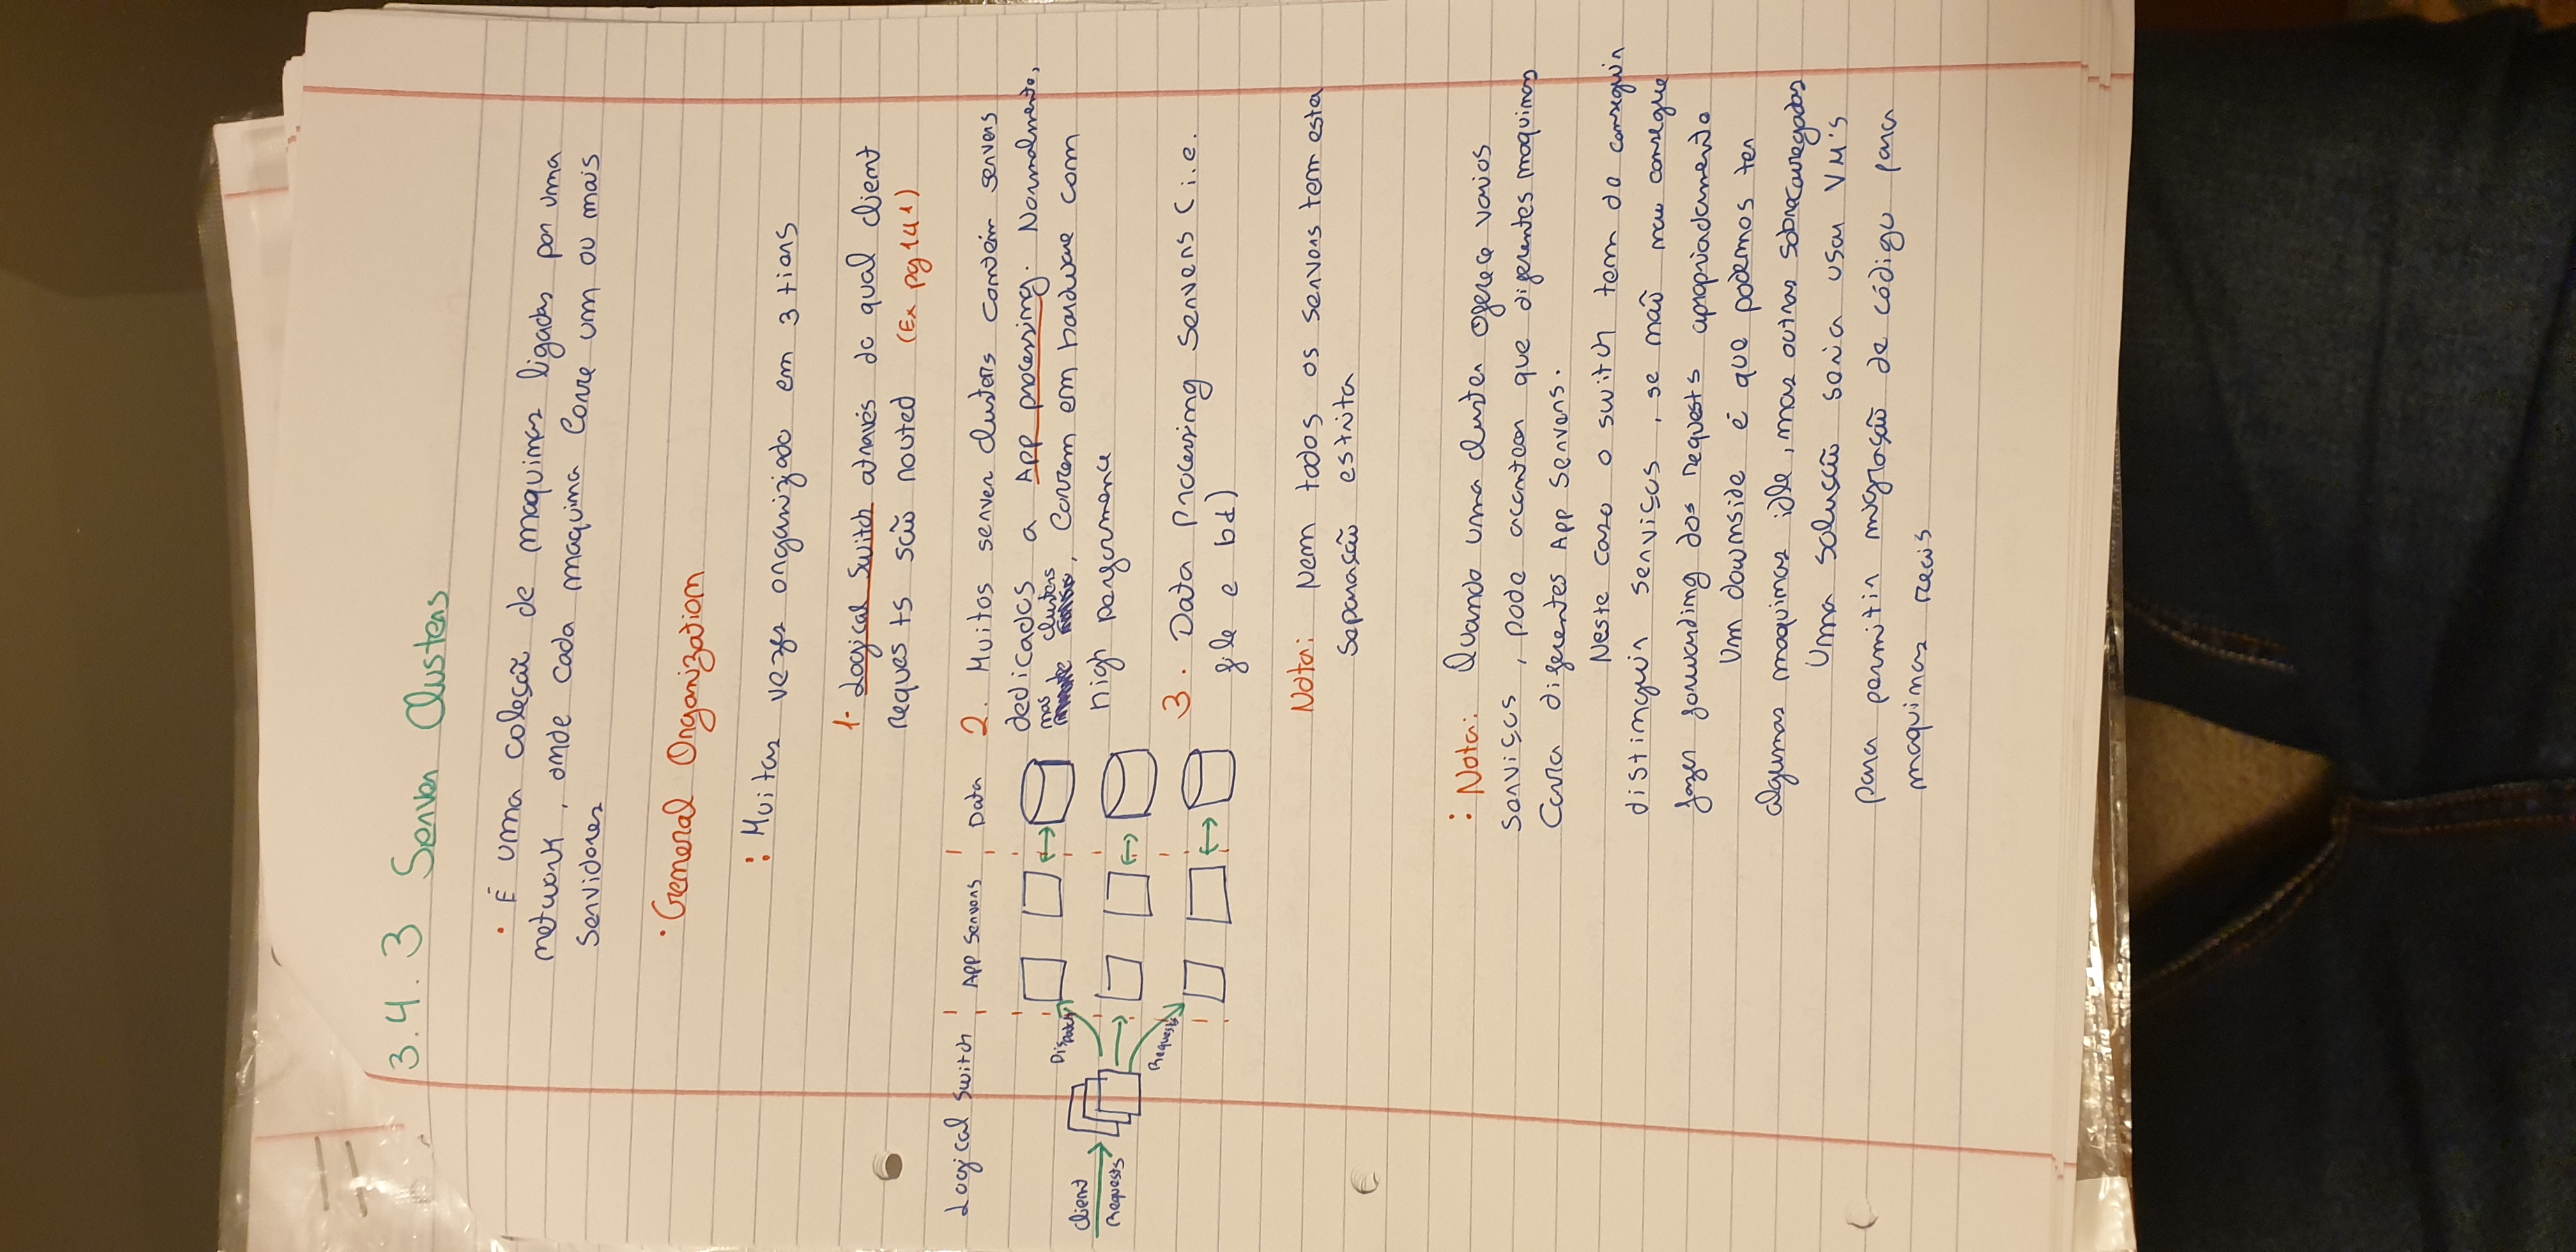 3.4.3 Server Clusters
• É uma coleção de maquinas ligadas por uma
network, onde cada maquina corre um ou mais
servidores
• General Organization
: Muitas vezes organiziado em 3 tiers
1- Logical Switch através do qual client
requests são routed (Ex pg 141)
Logical Switch App Servers Data
Dispatch
Client
Requests
Requests
2. Muitos server clusters contêm servers
dedicados a App processing. Normalmente,
nas clusters, correm em hardware com
high performence
3. Data Processing Servers (i.e.
file e bd)
Nota: Nem todos os servers tem esta
separação estrita
: Nota: Quando uma cluster oferece varios
serviços, pode acontecer que diferentes maquinas
corra diferentes App Servers.
Neste caso o switch tem de conseguir
distinguir serviços, se não nau consegue
fazer forwarding dos requests apropriadamente
Um downside é que podemos ter
algumas maquinas idle, mas outras sobrecarregadas
Uma solução seria usar VM's
para permitir migração de código para
maquinas reais